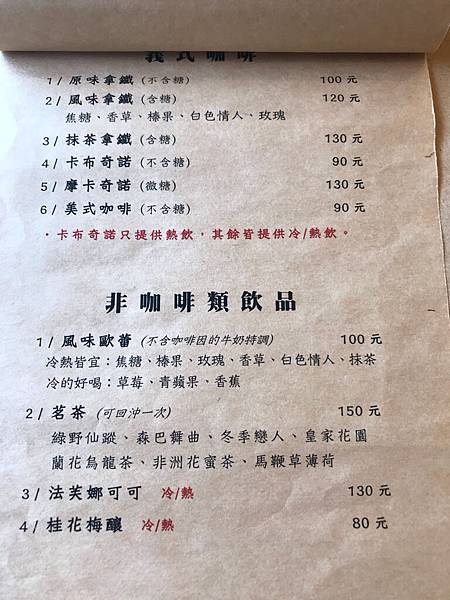 義式咖啡
1/ 原味拿鐵 (不含糖) 100 元
2/ 風味拿鐵 (含糖) 120 元
焦糖、香草、榛果、白色情人、玫瑰
3/ 抹茶拿鐵 (含糖) 130 元
4/ 卡布奇諾 (不含糖) 90 元
5/ 摩卡奇諾 (微糖) 130 元
6/ 美式咖啡 (不含糖) 90 元
・卡布奇諾只提供熱飲，其餘皆提供冷/熱飲。
非咖啡類飲品
1/ 風味歐蕾 (不含咖啡因的牛奶特調) 100 元
冷熱皆宜：焦糖、榛果、玫瑰、香草、白色情人、抹茶
冷的好喝：草莓、青蘋果、香蕉
2/ 茗茶 (可回沖一次) 150 元
綠野仙蹤、森巴舞曲、冬季戀人、皇家花園
蘭花烏龍茶、非洲花蜜茶、馬鞭草薄荷
3/ 法芙娜可可 冷/熱 130 元
4/ 桂花梅釀 冷/熱 80 元